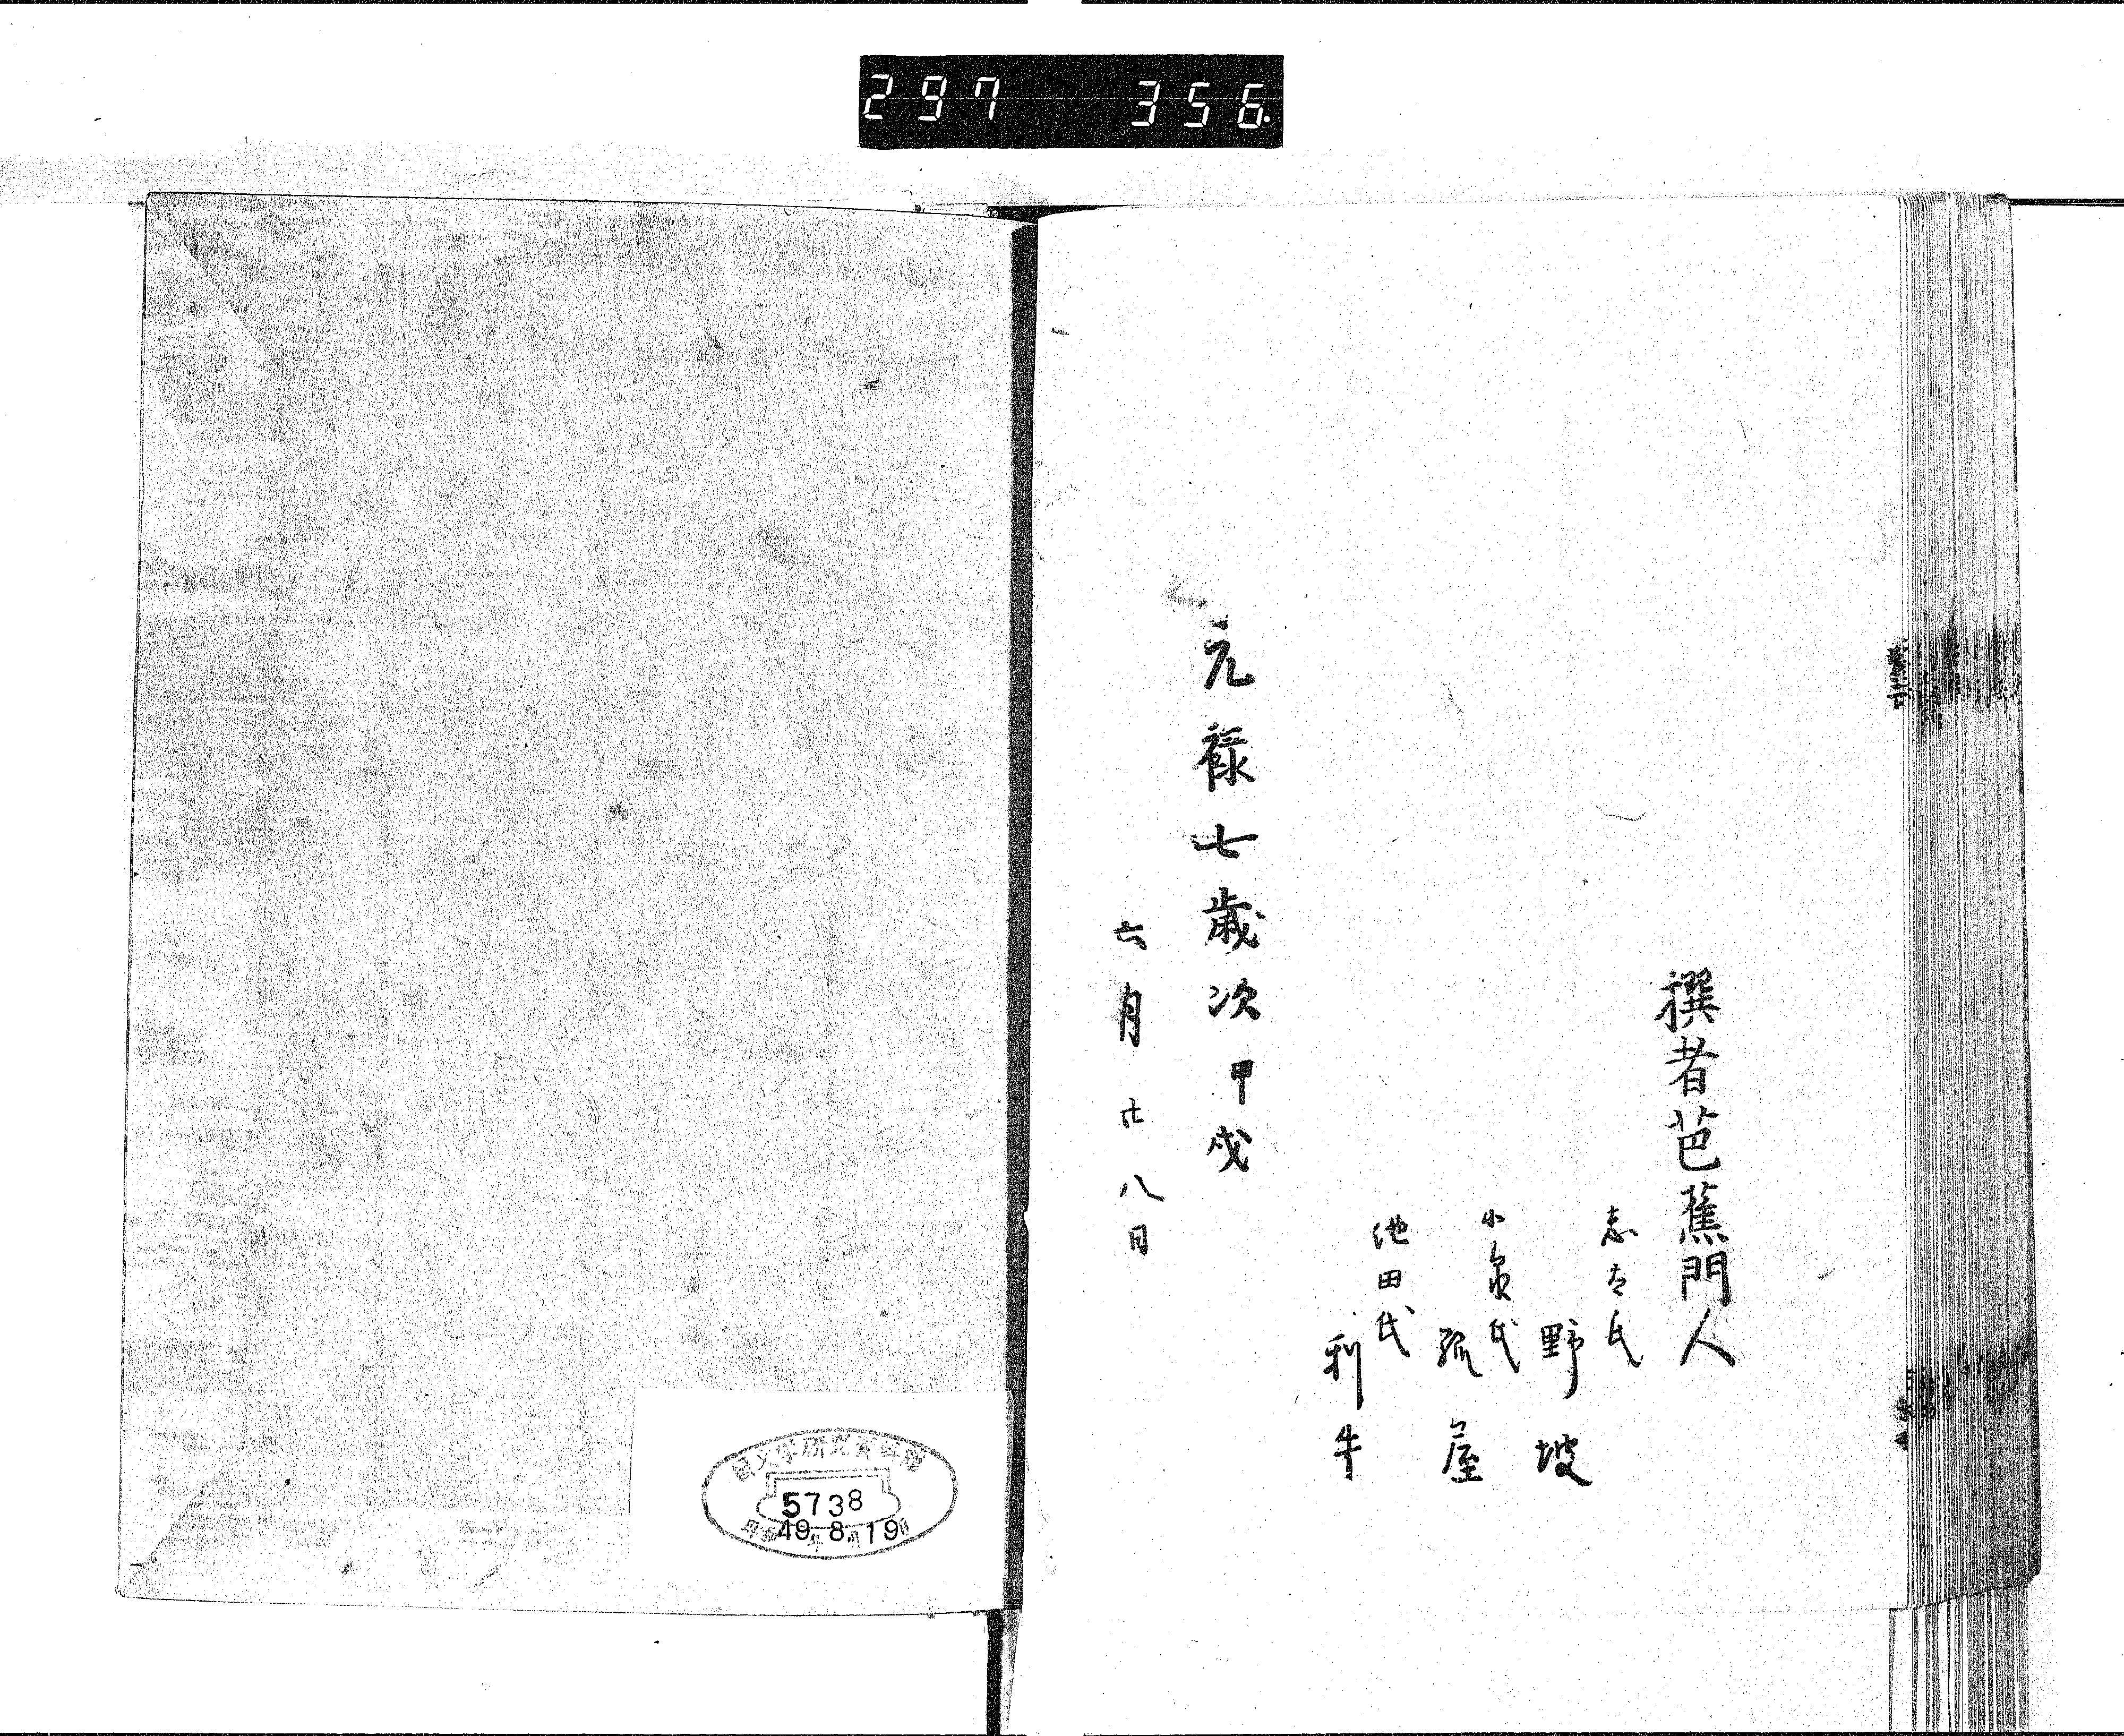 297 356.
撰者芭蕉門人
志太氏
野坡
小泉氏
孤屋
池田氏
利牛
元禄七歳次甲戌
六月廿八日
国文学研究資料館
5738
49.8.19